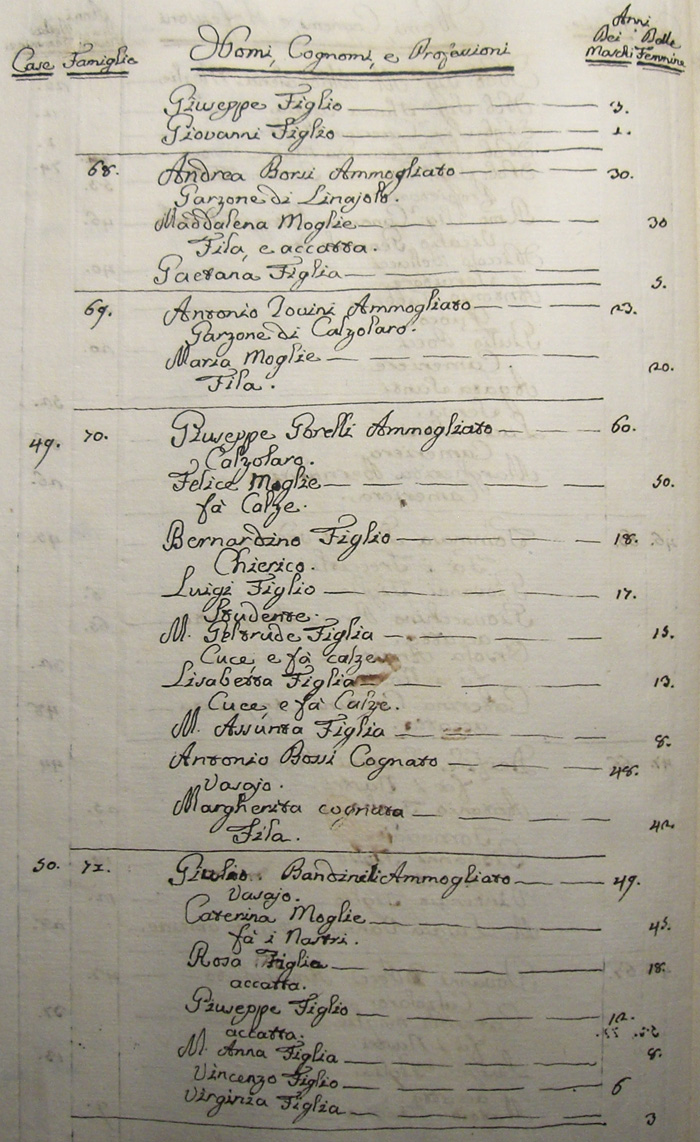 Case Famiglie Nomi, Cognomi, e Professioni Anni Dei Maschi Delle Femmine
Giuseppe Figlio 3.
Giovanni Figlio 1.
68. Andrea Borsi Ammogliato 30.
Garzone di Linajolo.
Maddalena Moglie 30
Fila, e accatta.
Gaetana Figlia 5.
69. Antonio Ammogliato 23.
Garzone di Calzolaro.
Maria Moglie 20.
Fila.
49. 70. Giuseppe Borelli Ammogliato 60.
Calzolaro.
Felice Moglie 50.
fà Calze.
Bernardino Figlio 18.
Chierico.
Luigi Figlio 17.
Studente.
M. Geltrude Figlia 15.
Cuce, e fà calze
Lisabetta Figlia 13.
Cuce, e fà Calze.
M. Assunta Figlia 8.
Antonio Bossi Cognato 48.
Vasajo.
Margherita cognata 42.
Fila.
50. 71. Giulio Bandineli Ammogliato 49.
Vasajo.
Caterina Moglie 45.
fà i Nastri.
Rosa Figlia 18.
accatta.
Giuseppe Figlio 12.
accatta.
M. Anna Figlia 8.
Vincenzo Figlio 6
Virginia Figlia 3